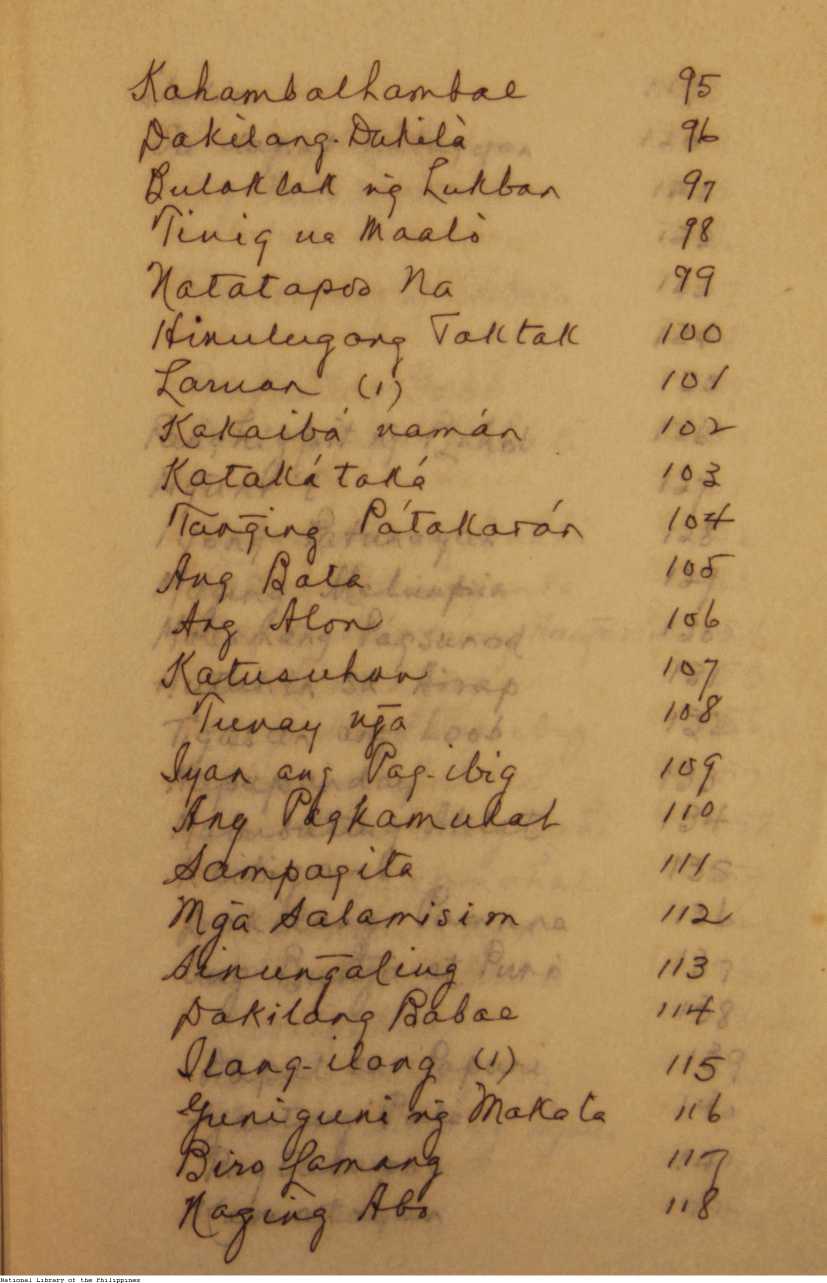 Kahambalhambal 95
Dakilang-Dakilà 96
Bulaklak ng Lukban 97
Tinig na Maalò 98
Natatapos Na 99
Hinulugang Taktak 100
Laruan (1) 101
Kakaibá namán 102
Katakátaká 103
Tang̃ing Pátakarán 104
Ang Bata 105
Ang Alon 106
Katusuhan 107
Tunay ng̃a 108
Iyan ang Pag-ibig 109
Ang Pagkamulat 110
Sampagita 111
Mg̃a Salamisim 112
Sinung̃aling 113
Dakilang Babae 114
Ilang-ilang (1) 115
Guniguni ng Makata 116
Biro Lamang 117
Naging Abo 118
National Library of the Philippines